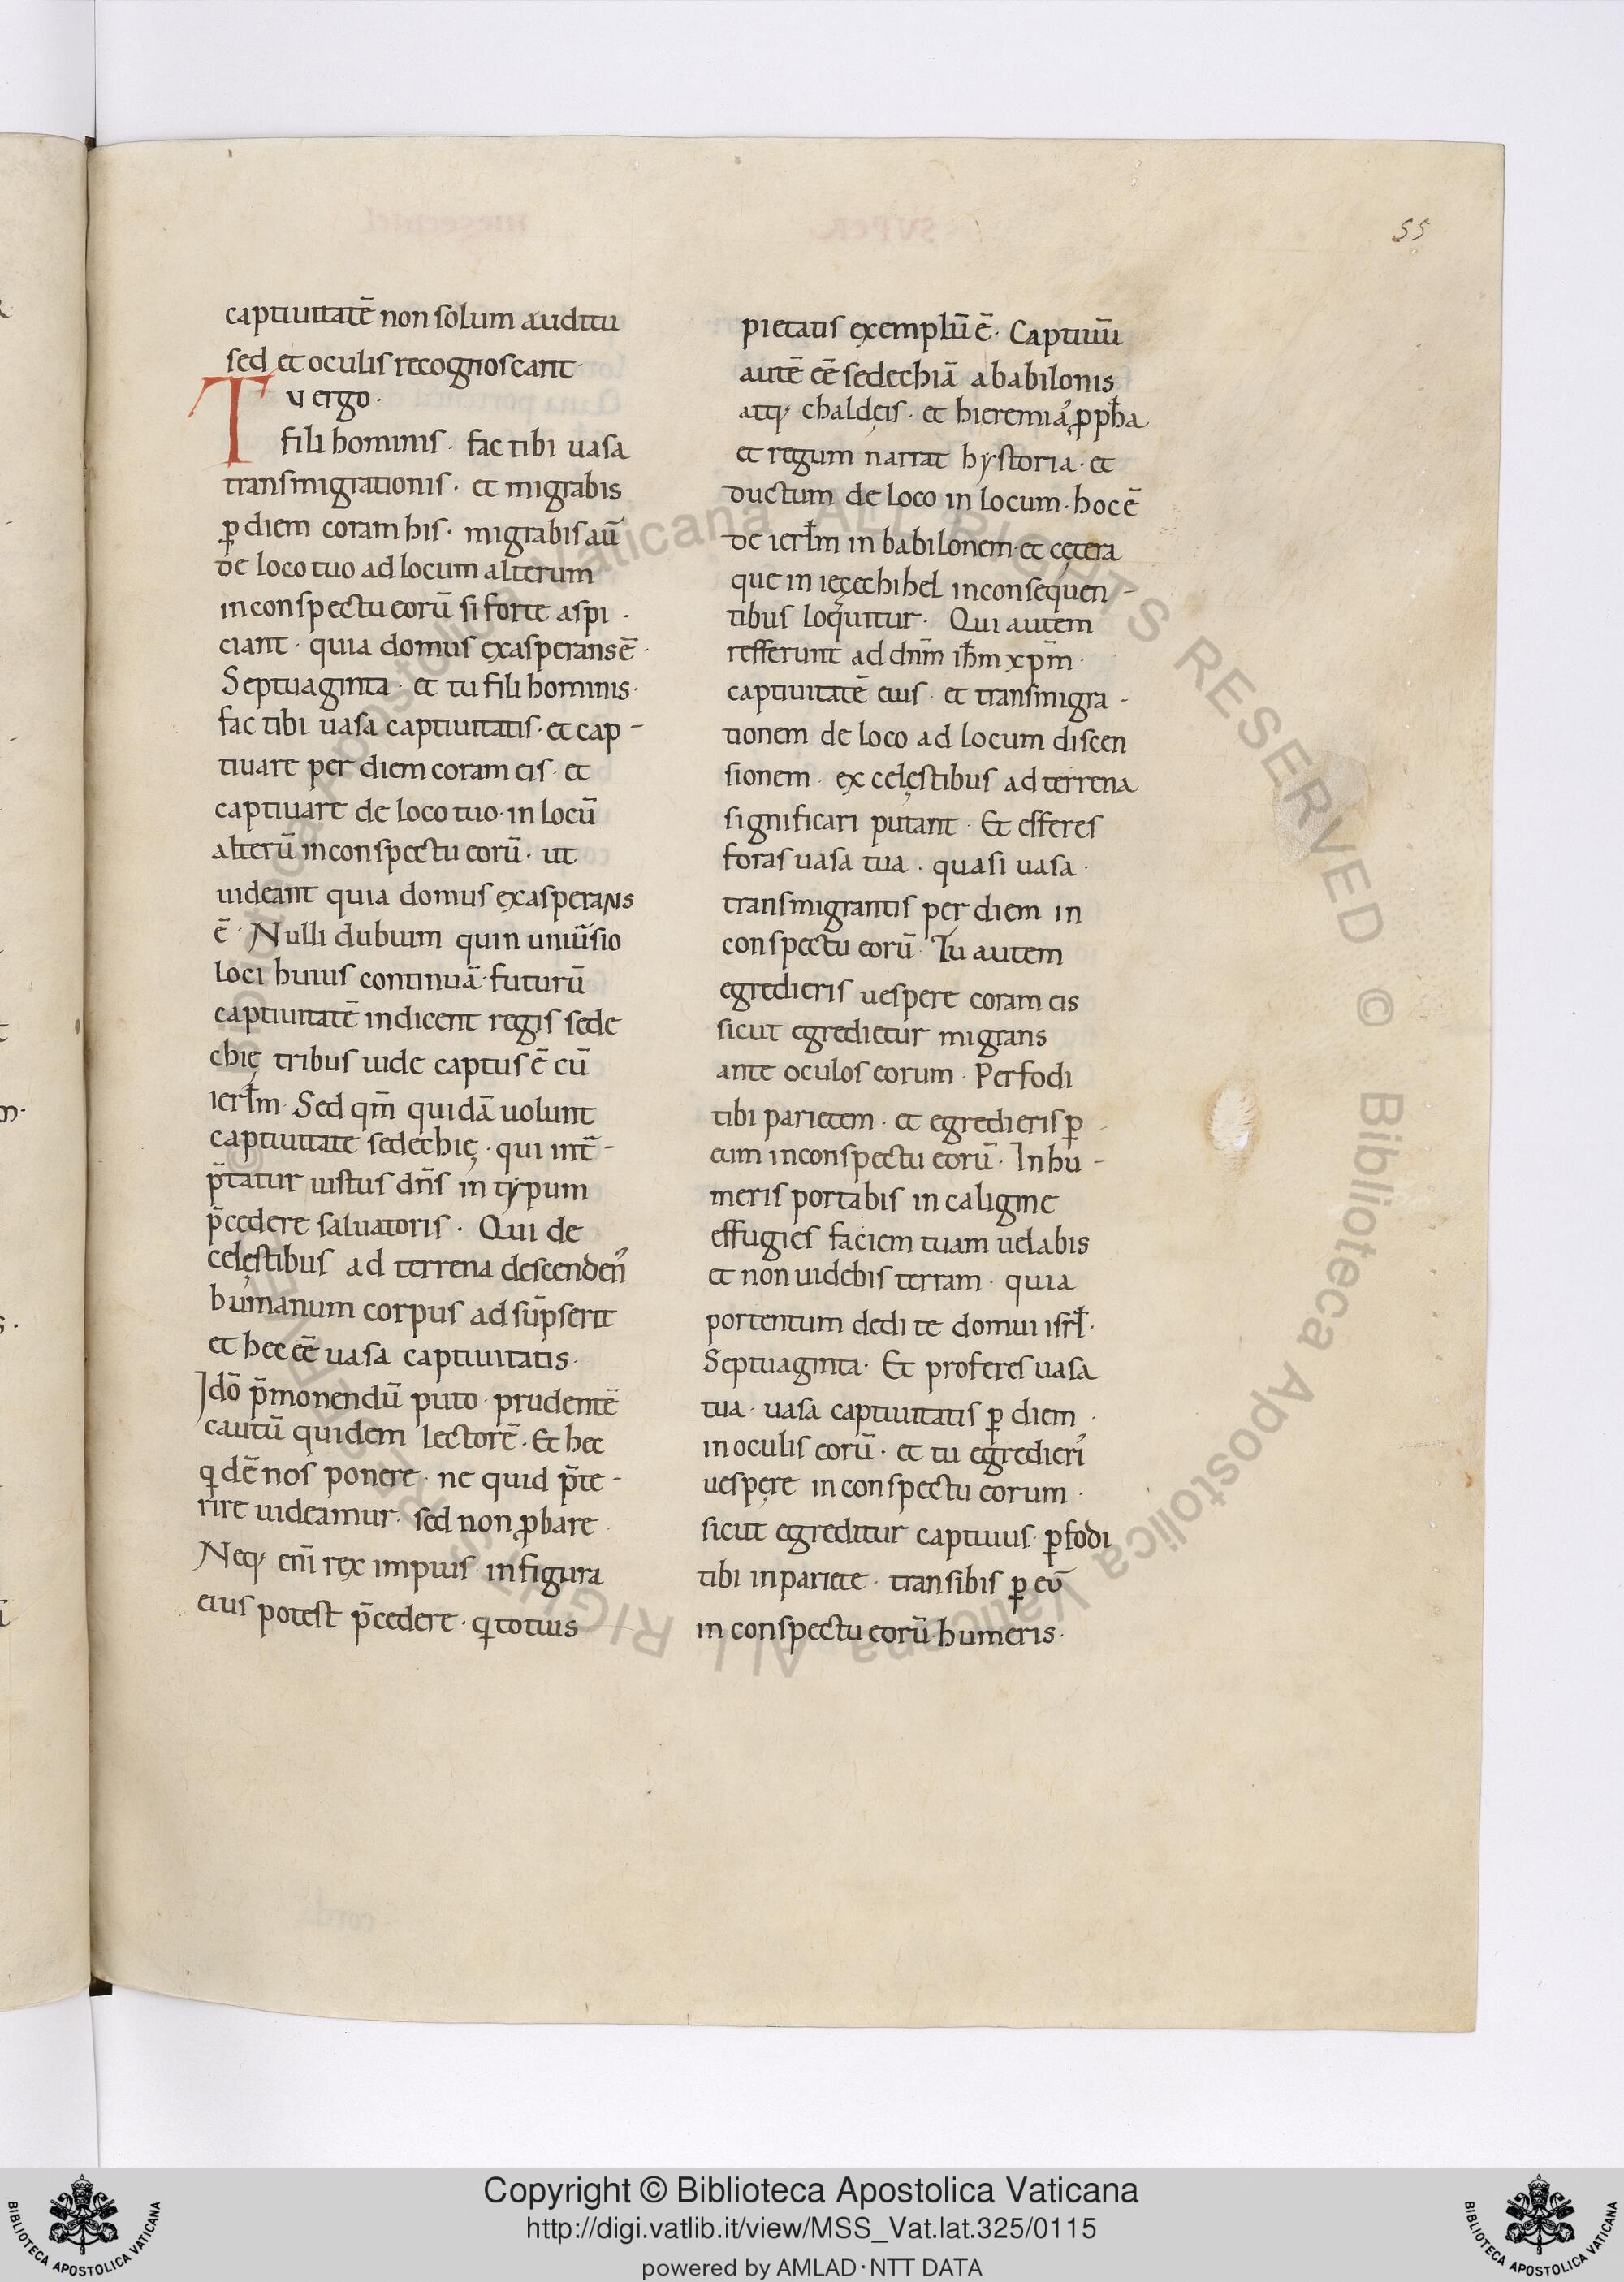 55
captiuitatē non solum auditu
sed et oculis recognoscant·
Tu ergo·
fili hominis· fac tibi uasa
transmigrationis· et migrabis
ꝑ diem coram his· migrabis aū
de loco tuo ad locum alterum
in conspectu eorū si forte aspi-
ciant· quia domus exasperans ē·
Septuaginta· et tu fili hominis·
fac tibi uasa captiuitatis· et cap-
tiuare per diem coram eis· et
captiuare de loco tuo· in locū
alterū in conspectu eorū· ut
uideant quia domus exasperans
ē· Nulli dubium quin uniu̅sio
loci huius continuā· futurū
captiuitatē indicent regis sede
chię tribus uide captus ē cū
ierl̅m· Sed qm̅ quidā uolunt
captiuitate sedechię· qui int̅-
p̅tatur iustus dn̅s in typum
p̅cedere saluatoris· Qui de
celęstibus ad terrena descenden᾽
humanum corpus adsūpserit
et hec eē uasa captiuitatis·
Idō p̅monendū puto· prudentē
cautū quidem lectorē· Et hec
qdē nos ponere· ne quid p̅te-
rire uideamur· sed non ꝓbare·
Neq; eni̅ rex impius in figura
eius potest p̅cedere· q totius
pietatis exemplū ē· Captiuū
autē eē sedechiā a babilonis
atq; chaldęis· et hieremię ꝓpħa
et regum narrat hystoria· et
ductum de loco in locum· hoc ē
de ierl̅m in babilonem· et cętera
que in ięzechihel in consequen-
tibus loquitur· Qui autem
refferunt ad dn̅m ih̅m xp̅m·
captiuitatē eius· et transmigra-
tionem de loco ad locum discen
sionem· ex celęstibus ad terrena
significari putant· Et efferes
foras uasa tua· quasi uasa·
transmigrantis per diem in
conspectu eorū· Tu autem
egredieris uespere coram eis
sicut egredietur migrans
ante oculos eorum· Perfodi
tibi parietem· et egredieris ꝑ
eum in conspectu eorū· In hu-
meris portabis in caligine
effugies faciem tuam uelabis
et non uidebis terram· quia
portentum dedi te domui isrl̅·
Septuaginta· Et proferes uasa
tua· uasa captiuitatis ꝑ diem·
in oculis eorū· et tu egredieri᾽
uespęre in conspectu eorum·
sicut egreditur captiuus· ꝑfodi
tibi in pariete· transibis ꝑ eū
in conspectu eorū humeris·
© Biblioteca Apostolica Vaticana ALL RIGHTS RESERVED © Biblioteca Apostolica Vaticana ALL RIGHTS RESERVED
BIBLIOTECA APOSTOLICA VATICANA
Copyright © Biblioteca Apostolica Vaticana
http://digi.vatlib.it/view/MSS_Vat.lat.325/0115
powered by AMLAD·NTT DATA
BIBLIOTECA APOSTOLICA VATICANA